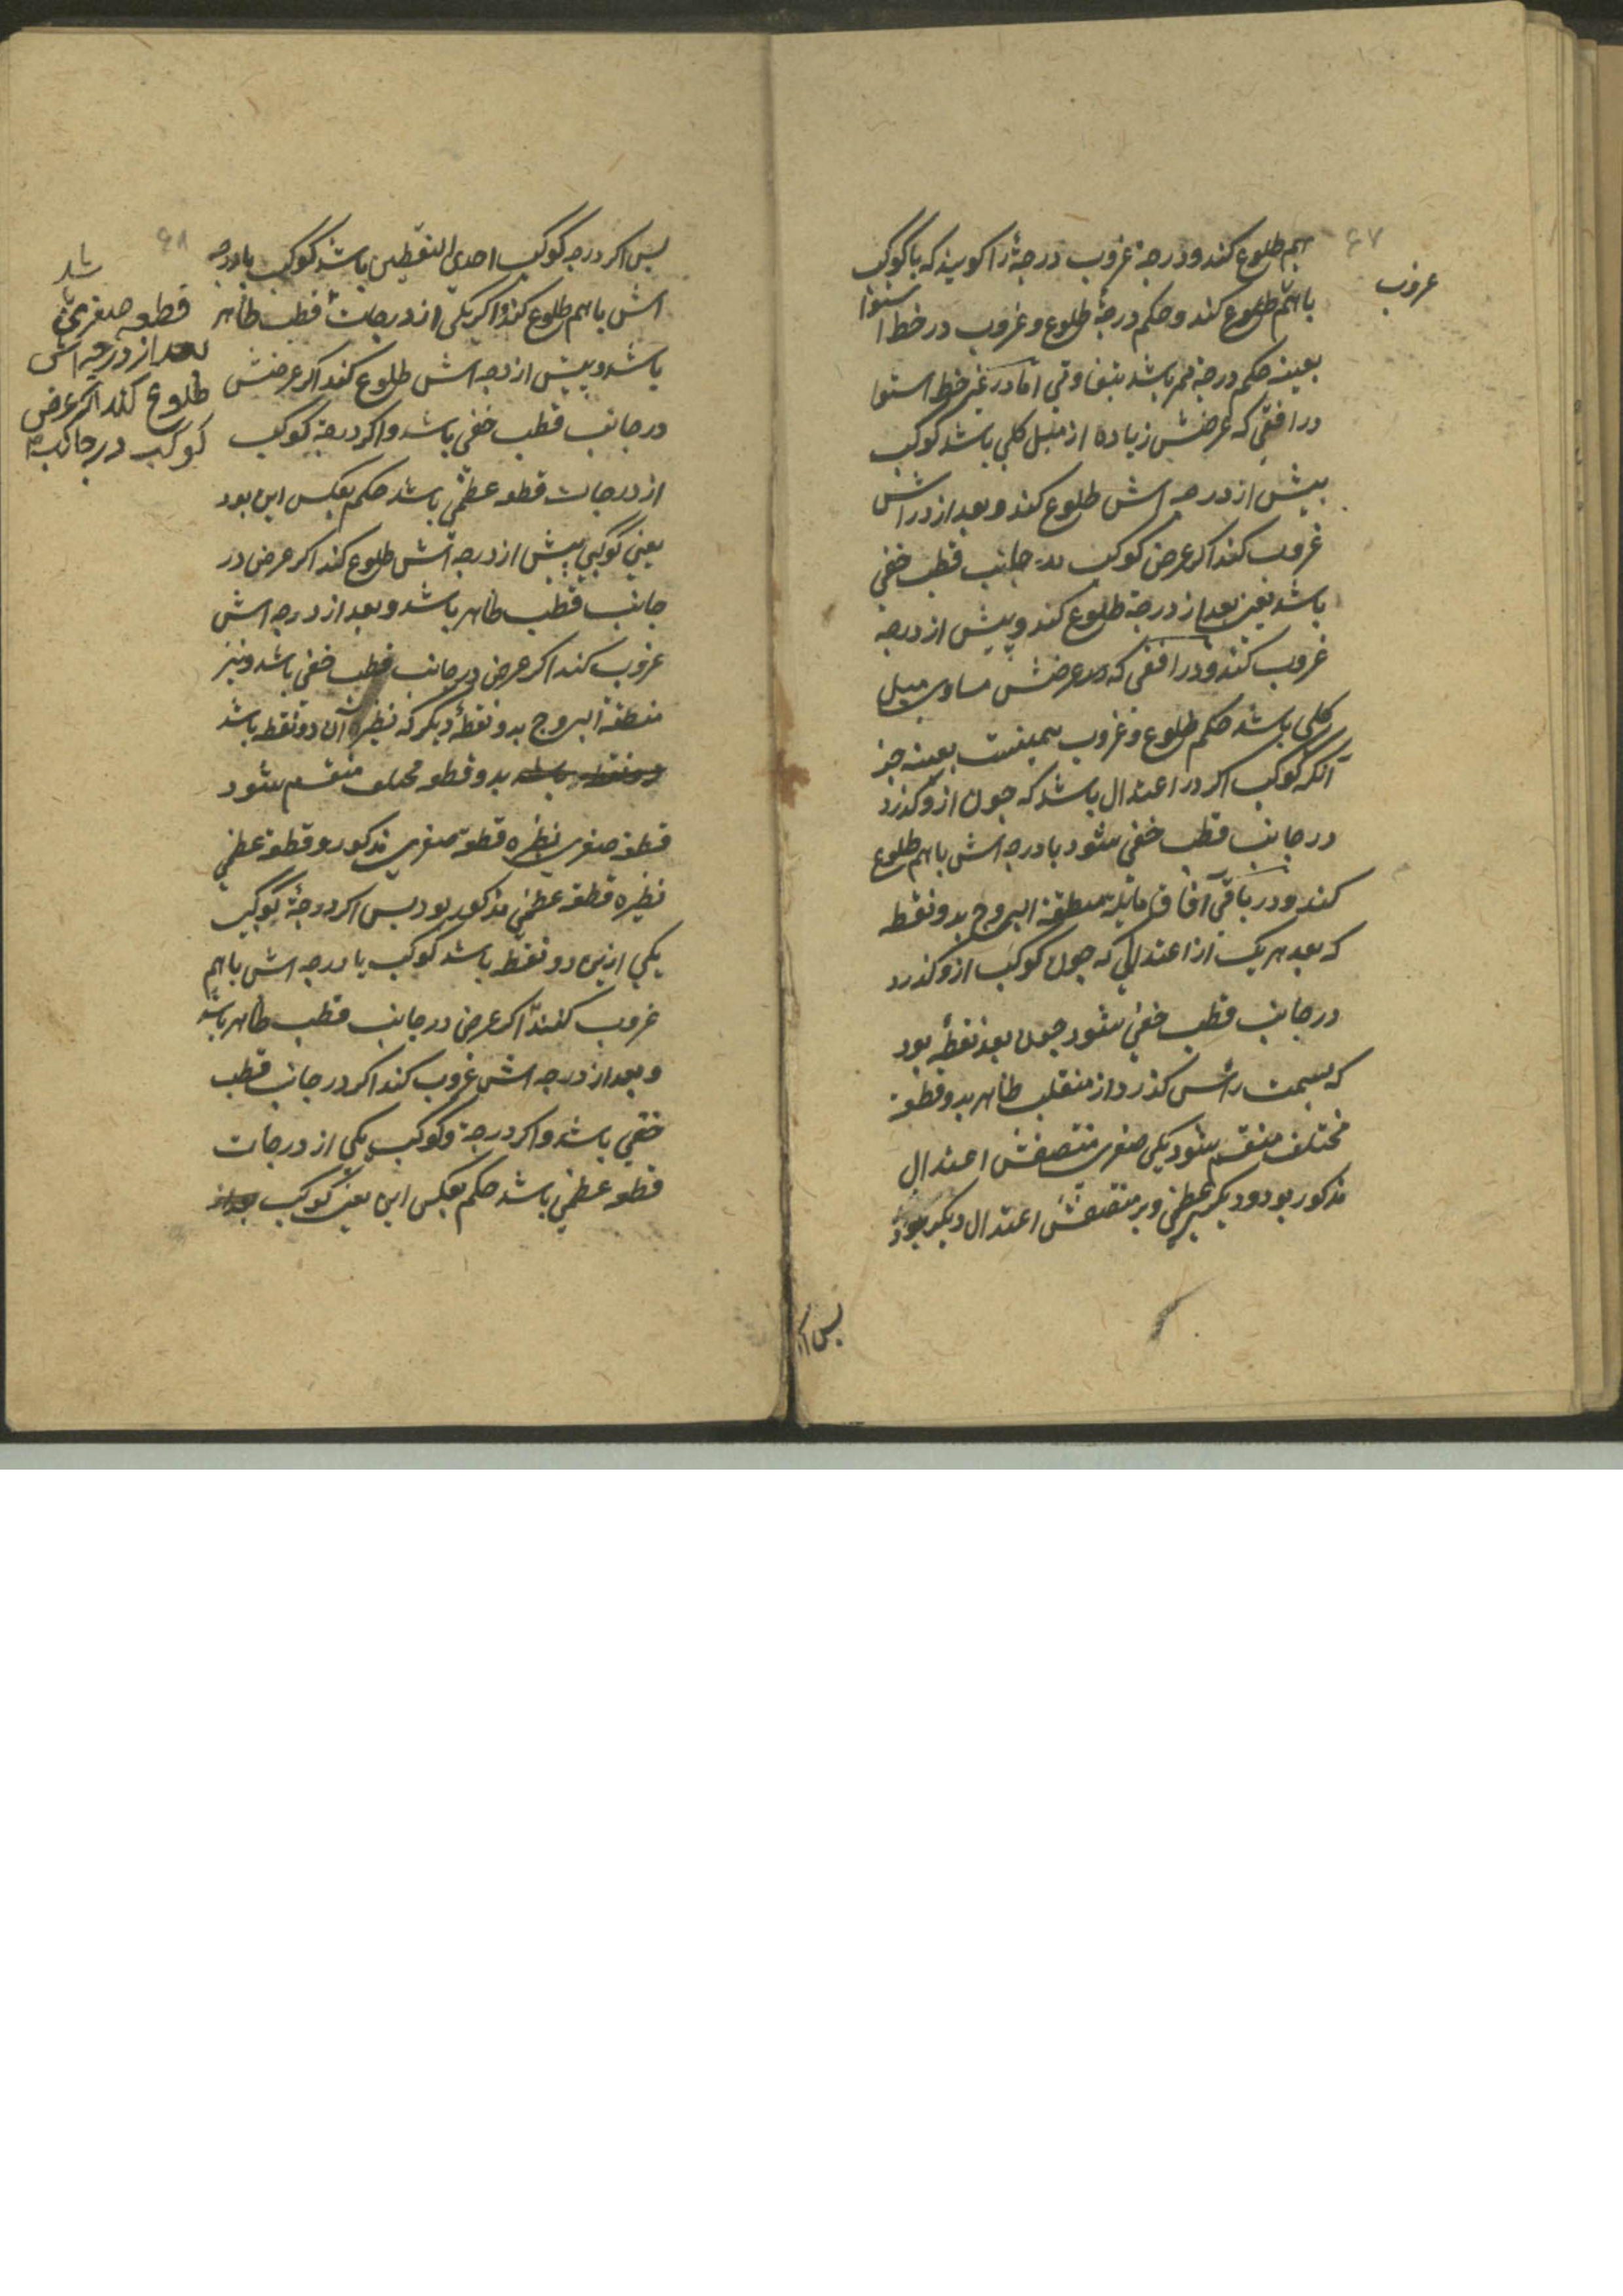 ۶۷
هم طلوع کند و درجهٔ غروب درجهٔ را گویند که با کوکب
غروب
باهم طلوع کند و حکم درجهٔ طلوع و غروب در خط استوا
بعینه حکم درجه ممر باشد بتفاوتی اما در غیر خط استوا
در افقی که عرضش زیاده از میل کلی باشد کوکب
پیش از درجه اش طلوع کند و بعد از در اش
غروب کند اگر عرض کوکب در جانب قطب خفی
باشد یعنی بعد از درجه طلوع کند و پیش از درجه
غروب کند و در افقی که عرضش مساوی میل
کلی باشد حکم طلوع و غروب همینست بعینه جز
آنکه کوکب اگر در اعتدال باشد که چون ازو گذرد
در جانب قطب خفی شود با درجه اش باهم طلوع
کند و در باقی آفاق مایله منطقة البروج بدو نقطه
که بعد هر یک از اعتدالی که چون کوکب ازو گذرد
در جانب قطب خفی شود چون بعد نقطه بود
که بسمت رأس گذرد از منقلب ظاهر بدو قطعه
مختلف منقسم شود یکی صغری منتصفش اعتدال
مذکور بود و دیگر عظمی و بر منتصفش اعتدال دیگر بود
پس اگر
۶۸
پس اگر درجه کوکب احدی النقطتین باشد کوکب با درجه
اش باهم طلوع کند و اگر یکی از درجات قطب ظاهر
باشد و پیش از درجه اش طلوع کند اگر عرضش
در جانب قطب خفی باشد و اگر درجهٔ کوکب
از درجات قطعه عظمی باشد حکم بعکس این بود
یعنی کوکبی پیش از درجه اش طلوع کند اگر عرض در
جانب قطب ظاهر باشد و بعد از درجه اش
غروب کند اگر عرض در جانب قطب خفی باشد و نیز
منطقة البروج بدو نقطهٔ دیگر که نظیره آن دو نقطه باشد
دو نقطه باشد بدو قطعه مختلف منقسم شود
قطعه صغری نظیره قطعه صغری مذکور و قطعه عظمی
نظیره قطعه عظمی مذکور بود پس اگر درجهٔ کوکب
یکی ازین دو نقطه باشد کوکب با درجه اش باهم
غروب کنند اگر عرض در جانب قطب ظاهر باشد
و بعد از درجه اش غروب کند اگر در جانب قطب
خفی باشد و اگر درجهٔ کوکب یکی از درجات
قطعه عظمی باشد حکم بعکس این یعنی کوکب بعد از
شد
قطعه صغری
بعد از درجه اش
طلوع کند اگر عرض
کوکب در جانب